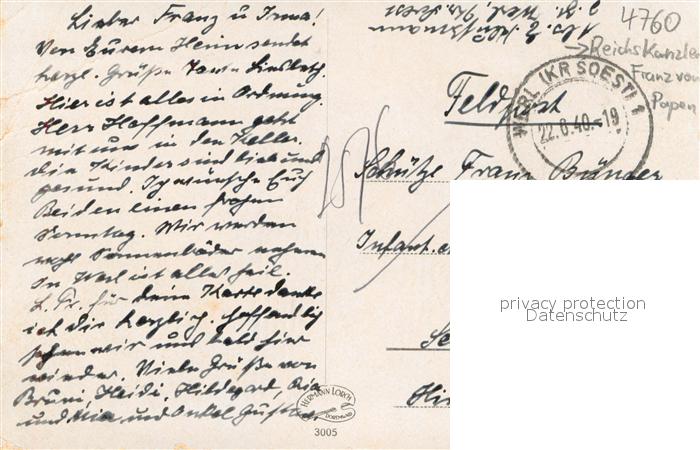 Lieber Franz u Irma!
Von Eurem Heim sendet
herzl. Grüße Tante
Hier ist alles in Ordnung.
Herr Hoffmann geht
mit uns in den Keller.
die Kinder sind lieb und
gesund. Ich wünsche Euch
Beiden einen frohen
Sonntag. Wir werden
wohl Sonnenbäder nehmen
In Werl ist alles heil.
L. Fr. für deine Karte danke
ich dir herzlich. Hoffentlich
sehen wir uns bald hier
wieder. Viele Grüße von
Bruni, Heidi, Hildegard, Ria
und Mia und Onkel Gustav
4760
→ Reichskanzler
Franz von
Papen
Feldpost
WERL (KR SOEST) 1
22.8.40.-19
Schütze Franz
Infant.
HERMANN LORCH
DORTMUND
3005
privacy protection
Datenschutz